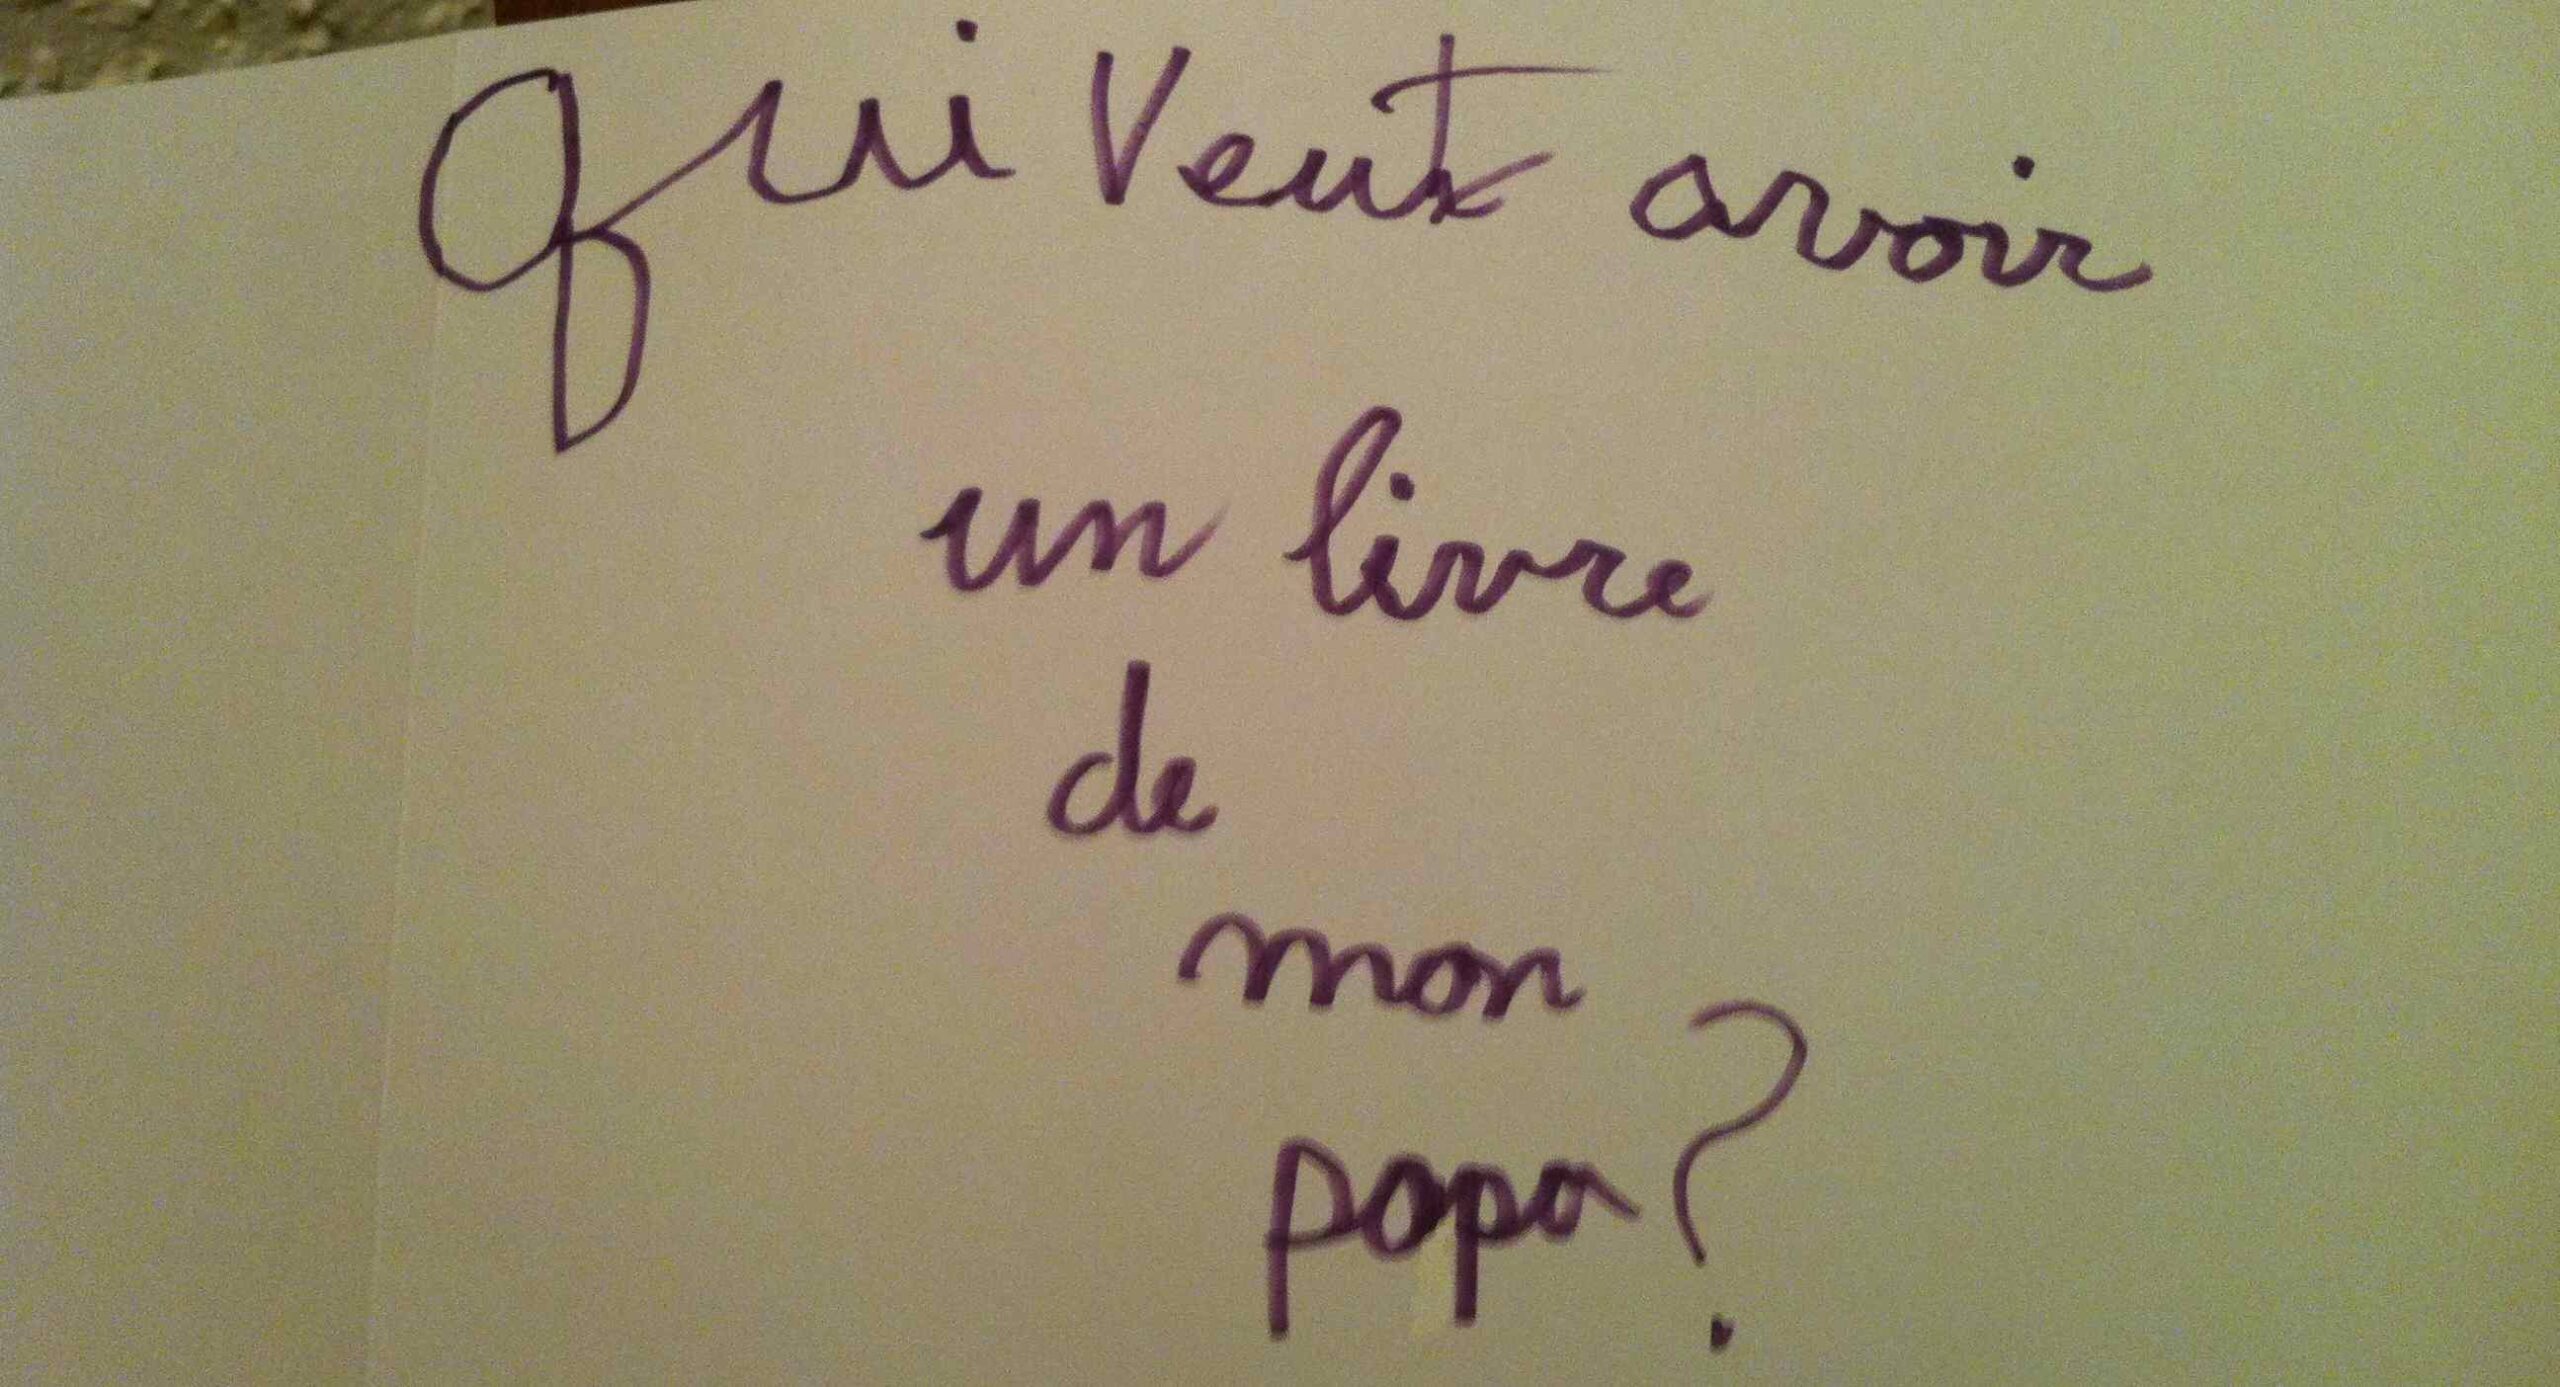 qui veut avoir
un livre
de
mon
papa?